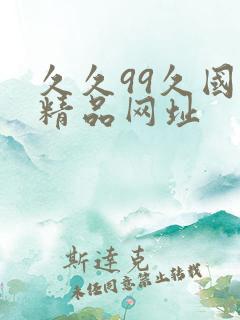 久久99久國
精品网址
斯達克
未任同意禁止转载